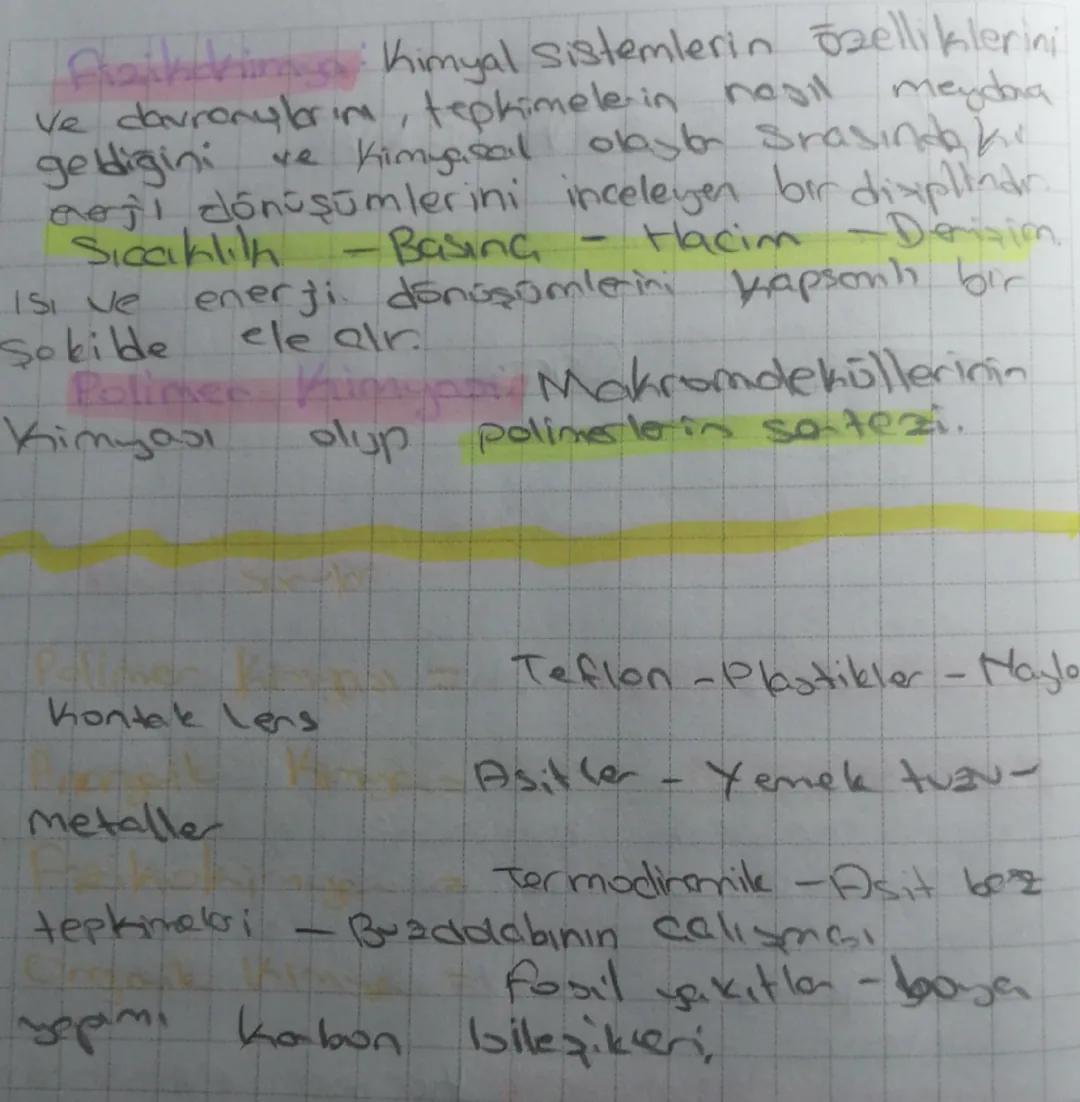 Fizikokimya: Kimyal sistemlerin özelliklerini
ve davranışlarını, tepkimelerin nasıl meydana
geldiğini ve kimyasal olaylar sırasındaki
enerji dönüşümlerini inceleyen bir disiplindir.
Sıcaklılık - Basınç - Hacim - Derişim.
ısı ve enerji dönüşümlerini kapsamlı bir
şekilde ele alır.
Polimer Kimyası: Makromoleküllerinin
kimyası olup polimerlerin sentezi.
Polimer Kimya = Teflon - Plastikler - Naylo
Kontak lens
Kimya = Asitler - Yemek tuzu -
metaller
Fizikokimya = Termodinamik - Asit baz
tepkimeleri - Buzdolabının çalışması
Organik Kimya = fosil yakıtlar - boya
yapımı Karbon bileşikleri,